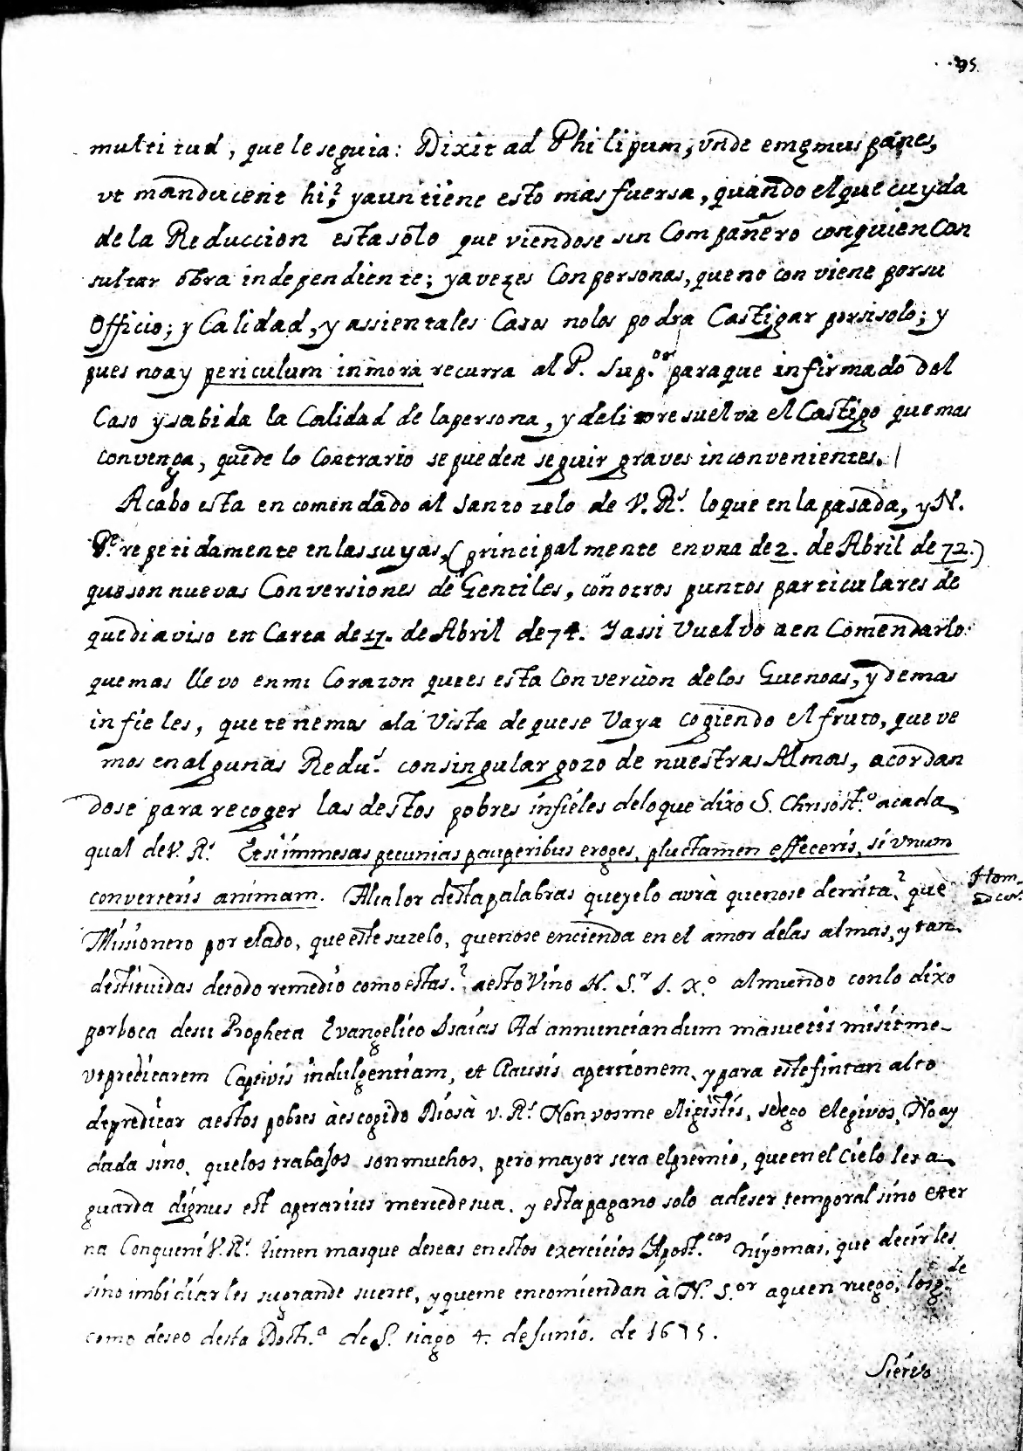 95.
multitud, que le seguia: Dixit ad Philipum, vnde ememus panes,
vt manducent hi? y aun tiene esto mas fuersa, quando el que cuyda
de la Reduccion esta solo que viendose sin Compañero con quien Con
sultar obra independiente; y a vezes Con personas, que no conviene por su
Officio; y Calidad, y assi en tales Casos no los podra Castigar por si solo; y
pues no ay periculum in mora recurra al P. Sup.or para que infirmado del
Caso y sabida la Calidad de la persona, y delito resuelva el Castigo que mas
convenga, que de lo Contrario se pueden seguir graves inconvenientes.
Acabo esta encomendado al Santo zelo de V. R.s lo que en la pasada, y N.
P.e repetidamente en las suyas, (principalmente en vna de 2. de Abril de 72.)
que son nuevas Conversiones de Gentiles, con otros puntos particulares de
que di aviso en Carta de 17. de Abril de 74. Y assi Vuelvo a enComendarlo
que mas llevo en mi Corazon que es esta Convercion de los Guenoas, y demas
infieles, que tenemos a la Vista de que se Vaya cogiendo el fruto, que ve
mos en algunas Redu.s con singular gozo de nuestras Almas, acordan
dose para recoger las destos pobres infieles de lo que dixo S. Chrisost.o a cada
qual de V. R.s Etsi immesas pecunias pauperibus eroges, plus tamen effeceris, si vnum
converteris animam. Al calor desta palabras que yelo avrà que no se derrita? què
Hom.
Misionero por elado, que este su zelo, que no se encienda en el amor de las almas, y tan
destituidas de todo remedio como estas? a esto Vino N. S.r J. X.o al mundo con lo dixo
por boca de su Propheta Evangelico Isaias Ad annunciandum masuetis misit me
vt predicarem Captivis indulgentiam, et Clausis apertionem, y para este fin tan alto
de predicar a estos pobres à escogido Dios à V. R.s Non vos me eligistis, sed ego elegi vos, No ay
duda sino, que los trabajos son muchos, pero mayor sera el premio, que en el Cielo les a
guarda dignus est operarius mercede sua. y esta paga no solo a de ser temporal sino eter
na Con que ni V. R.s tienen mas que deseas en estos exercicios Apost.cos ni yo mas, que decirles
sino imbidiarles su grande suerte, y que me encomiendan à N. S.or a quen ruego, los g.de
como deseo desta Doth.a de S. tiago 4. de Junio. de 1675.
Siervo